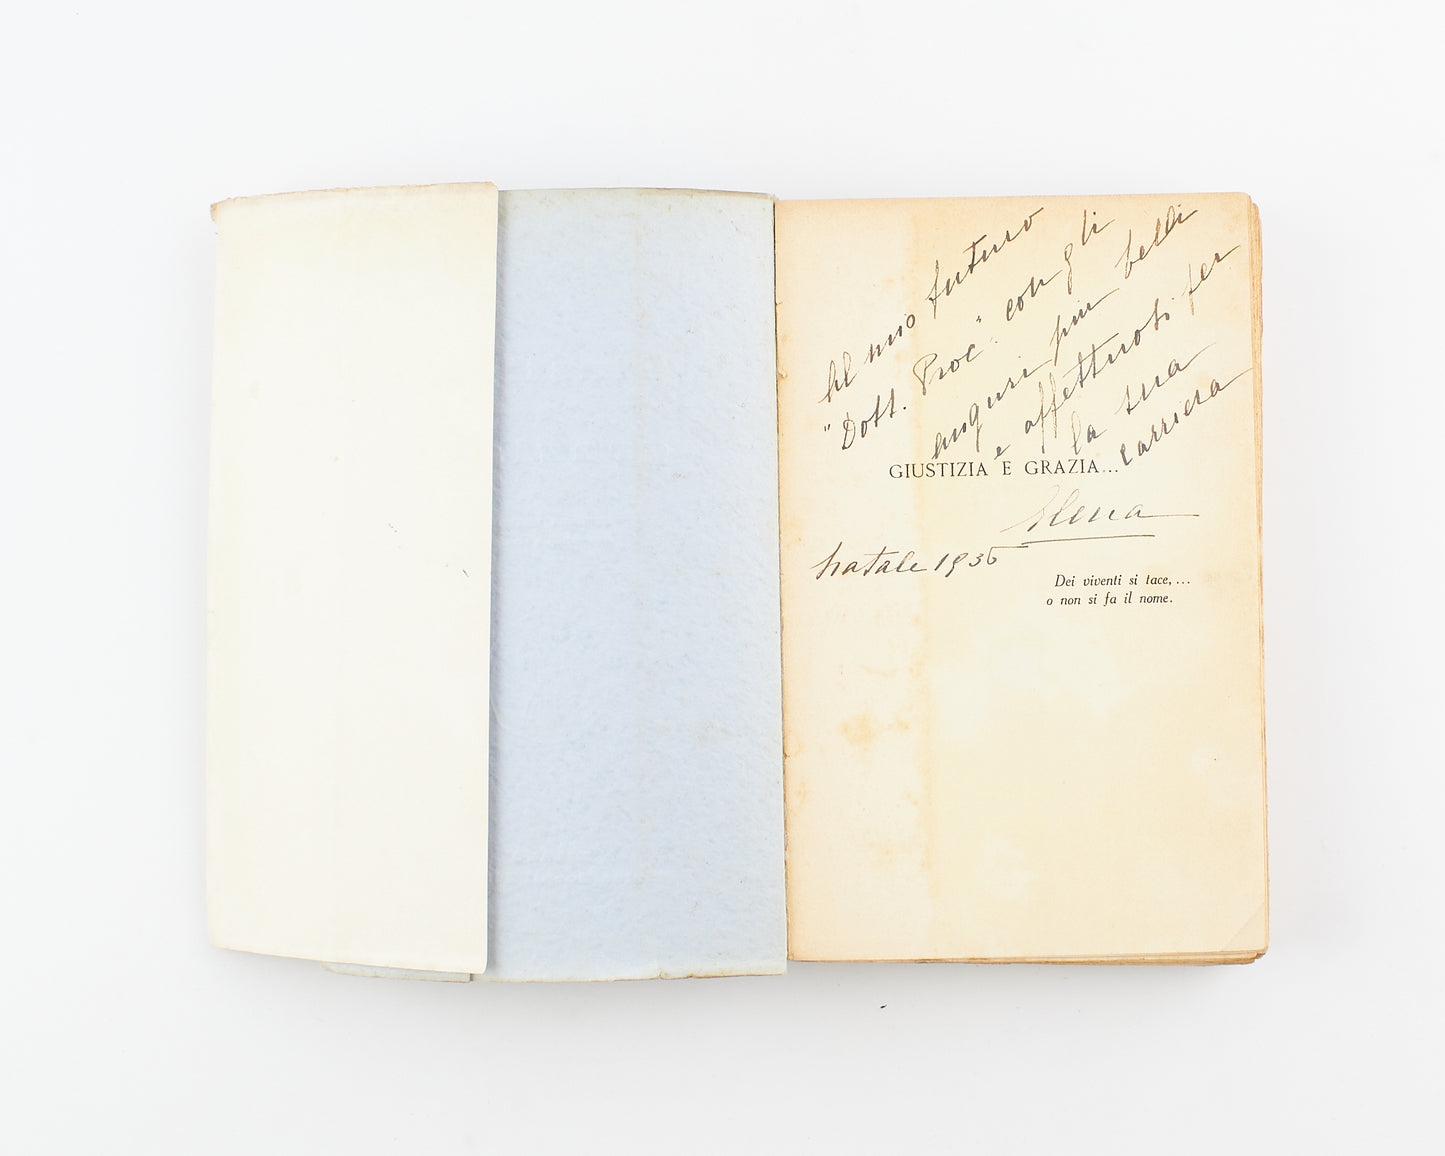 Al mio futuro
"Dott. Proc." con gli
auguri più belli
e affettuosi per
la sua
carriera
GIUSTIZIA E GRAZIA...
Elena
Natale 1935
Dei viventi si tace,...
o non si fa il nome.